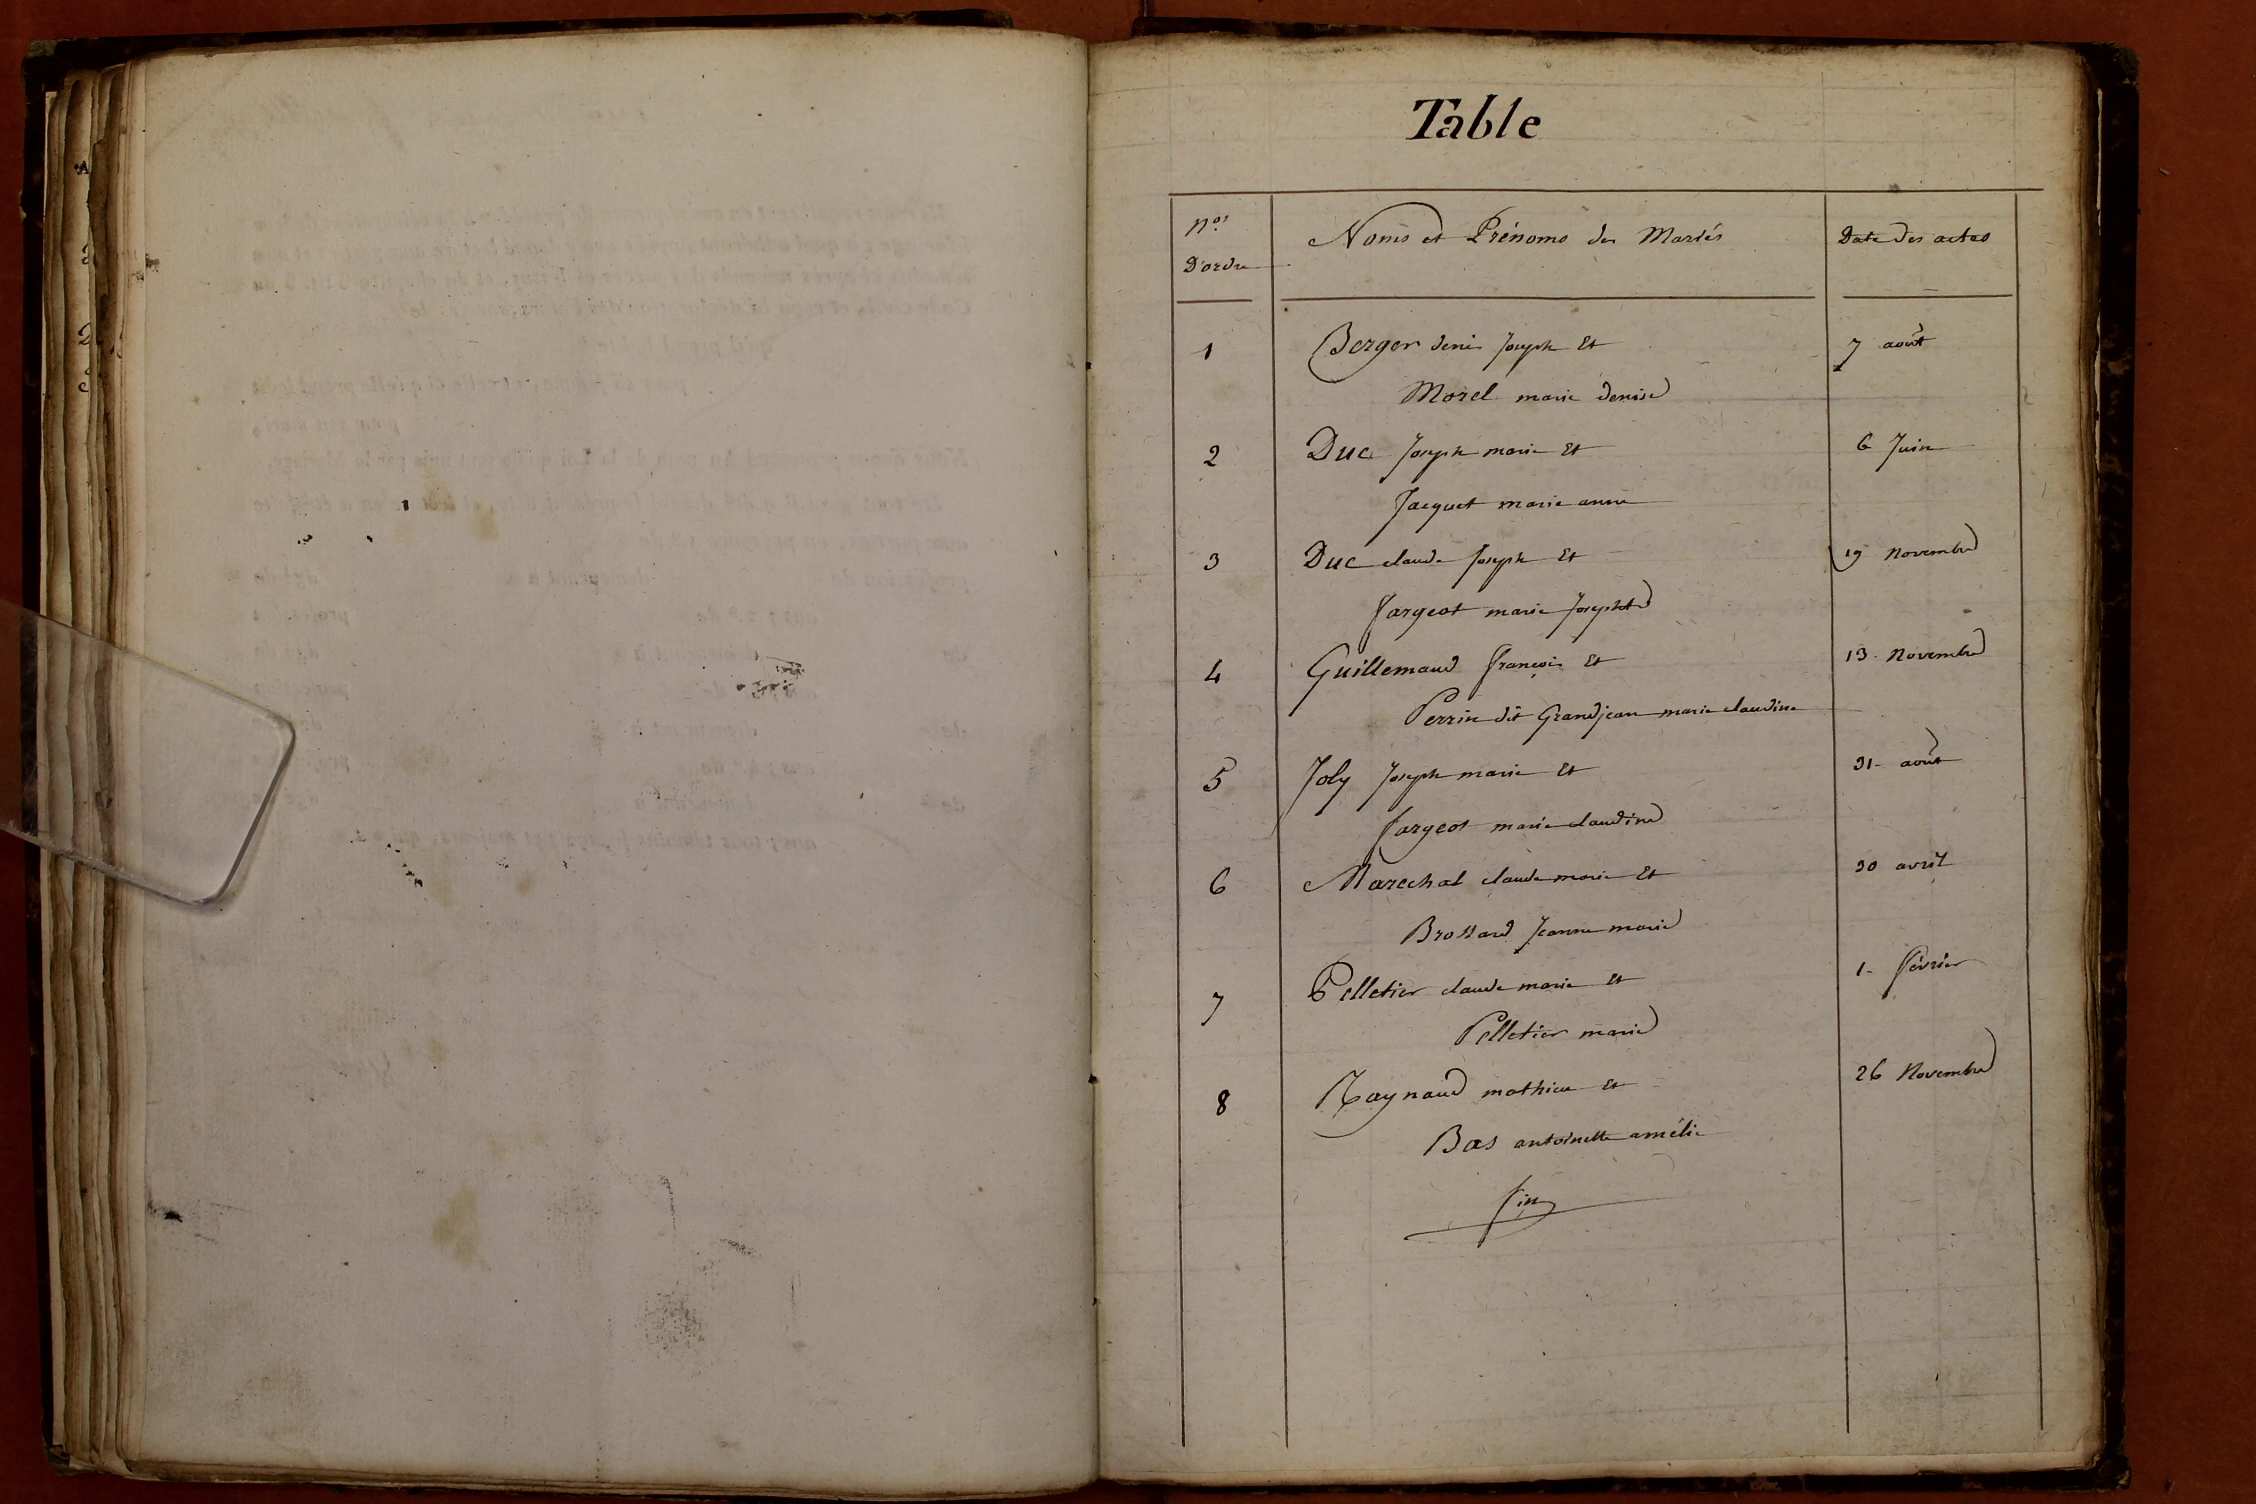 Table
Nos
D'ordre
Noms et Prénoms des Mariés
Date des actes
1 Berger denis Joseph Et 7 août
Morel marie denise
2 Duc Joseph marie Et 6 Juin
Jacquet marie anne
3 Duc claude Joseph Et 19 Novembre
fargeot marie Josephte
4 Guillemaud françois Et 13 Novembre
Perrin dit Grandjean marie claudine
5 Joly Joseph marie Et 31 août
fargeot marie claudine
6 Marechal claude marie Et 30 avril
Brossard Jeanne marie
7 Pelletier claude marie Et 1 février
Pelletier marie
8 Raynaud mathieu Et 26 Novembre
Bas antoinette amélie
fin